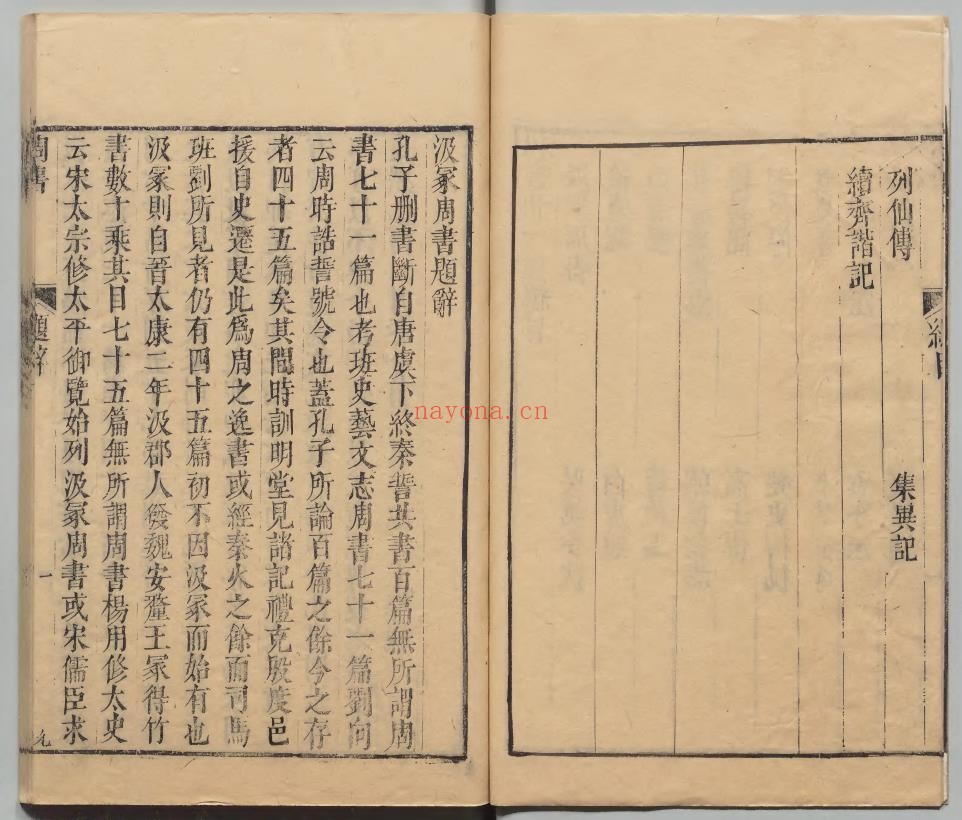 列仙傳 集異記
續齊諧記
總目
汲冢周書題辭
孔子删書斷自唐虞下終秦誓共書百篇無所謂周
書七十一篇也考班史藝文志周書七十一篇劉向
云周時誥誓號令也蓋孔子所論百篇之餘今之存
者四十五篇矣其間時訓明堂見諸記禮克殷度邑
援自史遷是此爲周之逸書或經秦火之餘而司馬
班劉所見者仍有四十五篇初不因汲冢而始有也
汲冢則自晉太康二年汲郡人發魏安釐王冢得竹
書數十乘其目七十五篇無所謂周書楊用修太史
云宋太宗修太平御覽始列汲冢周書或宋儒臣求
周書 題辭 一 九
nayona.cn